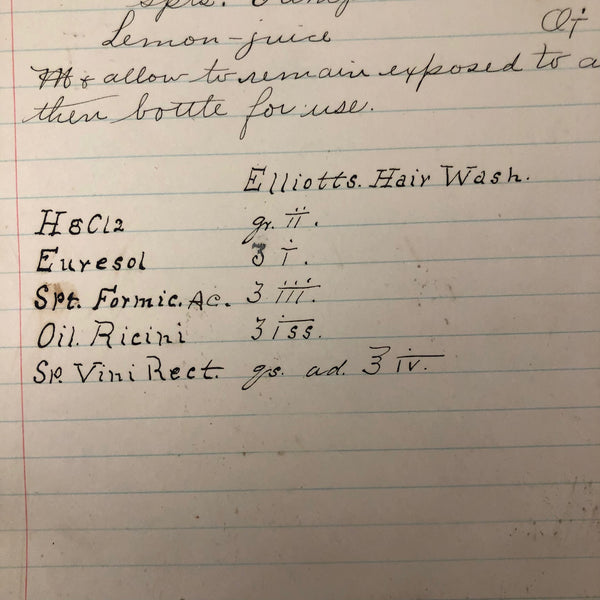 Lemon-juice Oi
M & allow to remain exposed to a
then bottle for use.
Elliotts. Hair Wash.
HgCl2 gr. ii.
Euresol ʒ i.
Spt. Formic. Ac. ʒ iii.
Oil. Ricini ʒ iss.
Sp. Vini Rect. qs. ad. ℥ iv.